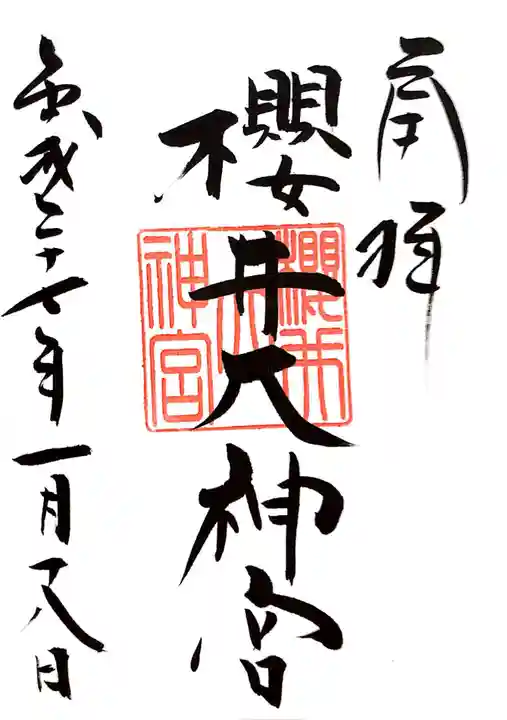 奉拝
櫻井大神宮
櫻井大神宮
平成二十七年一月十八日